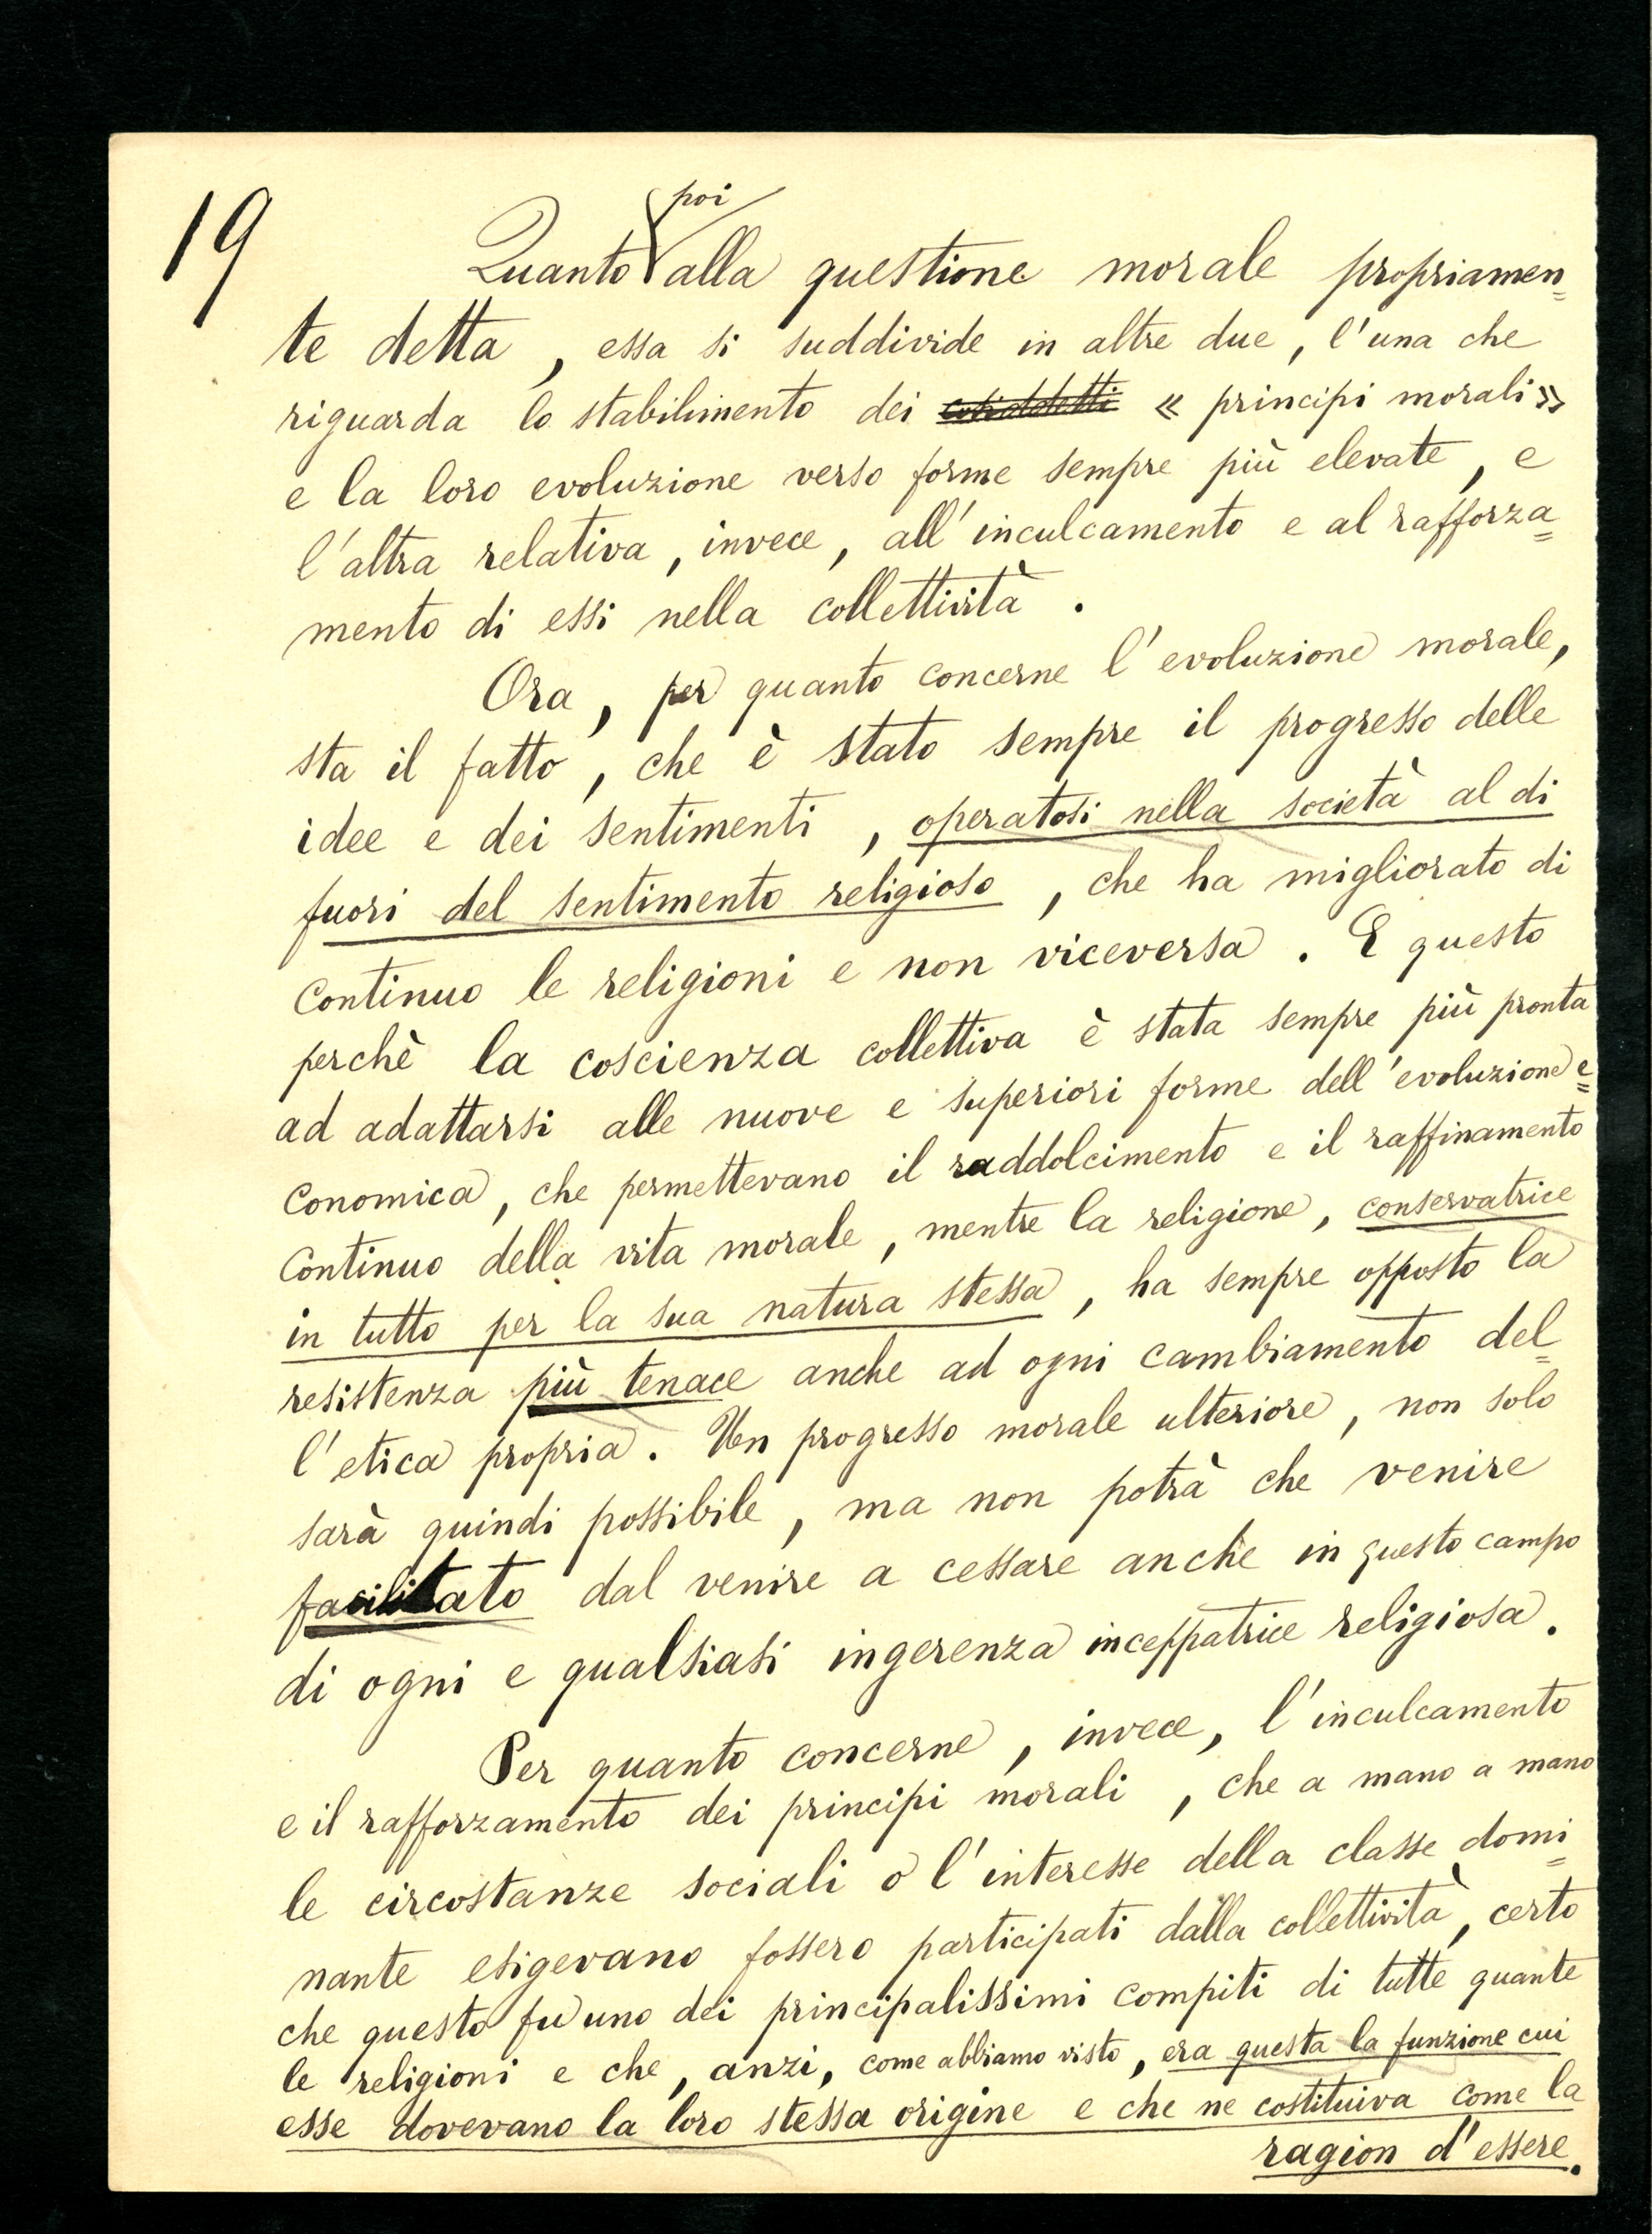 19
poi
Quanto alla questione morale propriamen=
te detta, essa si suddivide in altre due, l'una che
riguarda lo stabilimento dei cosiddetti « principi morali »
e la loro evoluzione verso forme sempre più elevate, e
l'altra relativa, invece, all'inculcamento e al rafforza=
mento di essi nella collettività.
Ora, per quanto concerne l'evoluzione morale,
sta il fatto, che è stato sempre il progresso delle
idee e dei sentimenti, operatosi nella società al di
fuori del sentimento religioso, che ha migliorato di
continuo le religioni e non viceversa. E questo
perchè la coscienza collettiva è stata sempre più pronta
ad adattarsi alle nuove e superiori forme dell'evoluzione e=
conomica, che permettevano il raddolcimento e il raffinamento
continuo della vita morale, mentre la religione, conservatrice
in tutto per la sua natura stessa, ha sempre opposto la
resistenza più tenace anche ad ogni cambiamento del=
l'etica propria. Un progresso morale ulteriore, non solo
sarà quindi possibile, ma non potrà che venire
facilitato dal venire a cessare anche in questo campo
di ogni e qualsiasi ingerenza inceppatrice religiosa.
Per quanto concerne, invece, l'inculcamento
e il rafforzamento dei principi morali, che a mano a mano
le circostanze sociali o l'interesse della classe domi=
nante esigevano fossero participati dalla collettività, certo
che questo fu uno dei principalissimi compiti di tutte quante
le religioni e che, anzi, come abbiamo visto, era questa la funzione cui
esse dovevano la loro stessa origine e che ne costituiva come la
ragion d'essere.